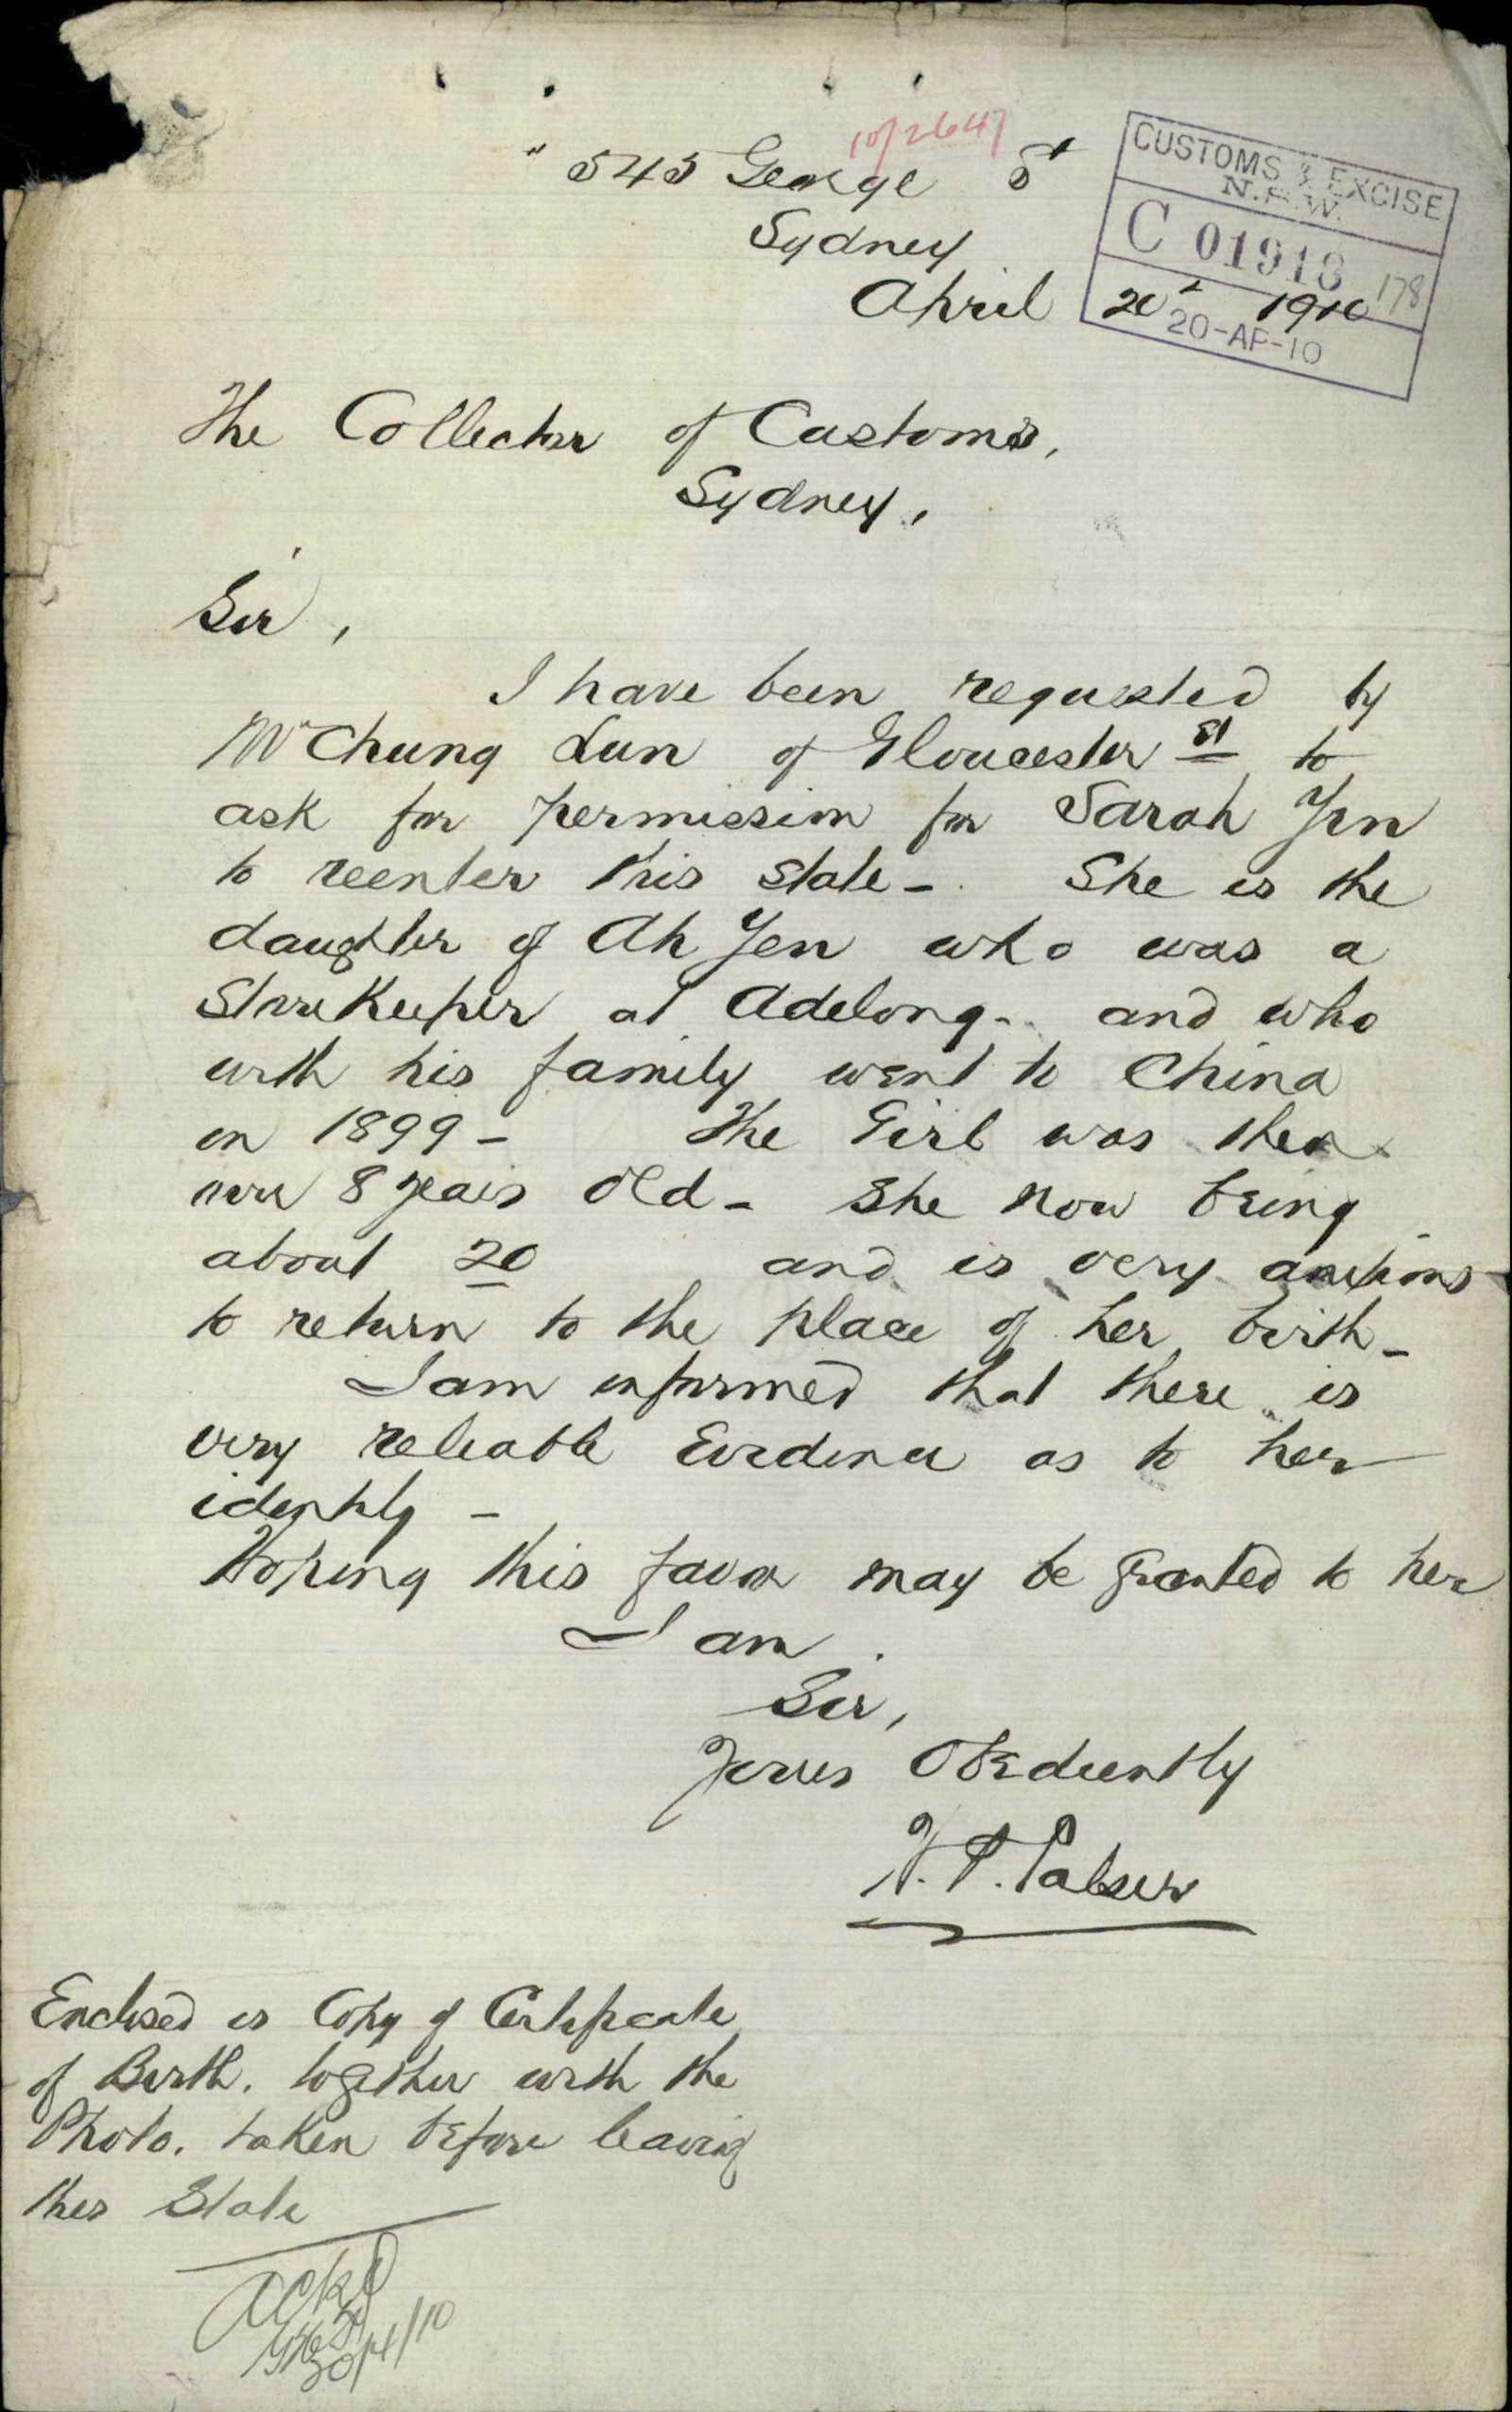 10/2647
" 545 George St
Sydney
April 20th 1910
CUSTOMS & EXCISE
N.S.W.
C 01918
178
20-AP-10
The Collector of Customs,
Sydney,
Sir,
I have been requested by
Mr Chung Lun of Gloucester St to
ask for permission for Sarah Yen
to reenter this State -. She is the
daughter of Ah Yen who was a
Storekeeper at Adelong - and who
with his family went to China
in 1899 - The Girl was then
8 years old - She now being
about 20 and is very anxious
to return to the place of her birth -
I am informed that there is
very reliable Evidence as to her
identity -
Hoping this favor may be granted to her
I am
Sir,
Yours Obediently
Enclosed is Copy of Certificate
of Birth. together with the
Photo. taken before leaving
this State
Ackd
20/4/10